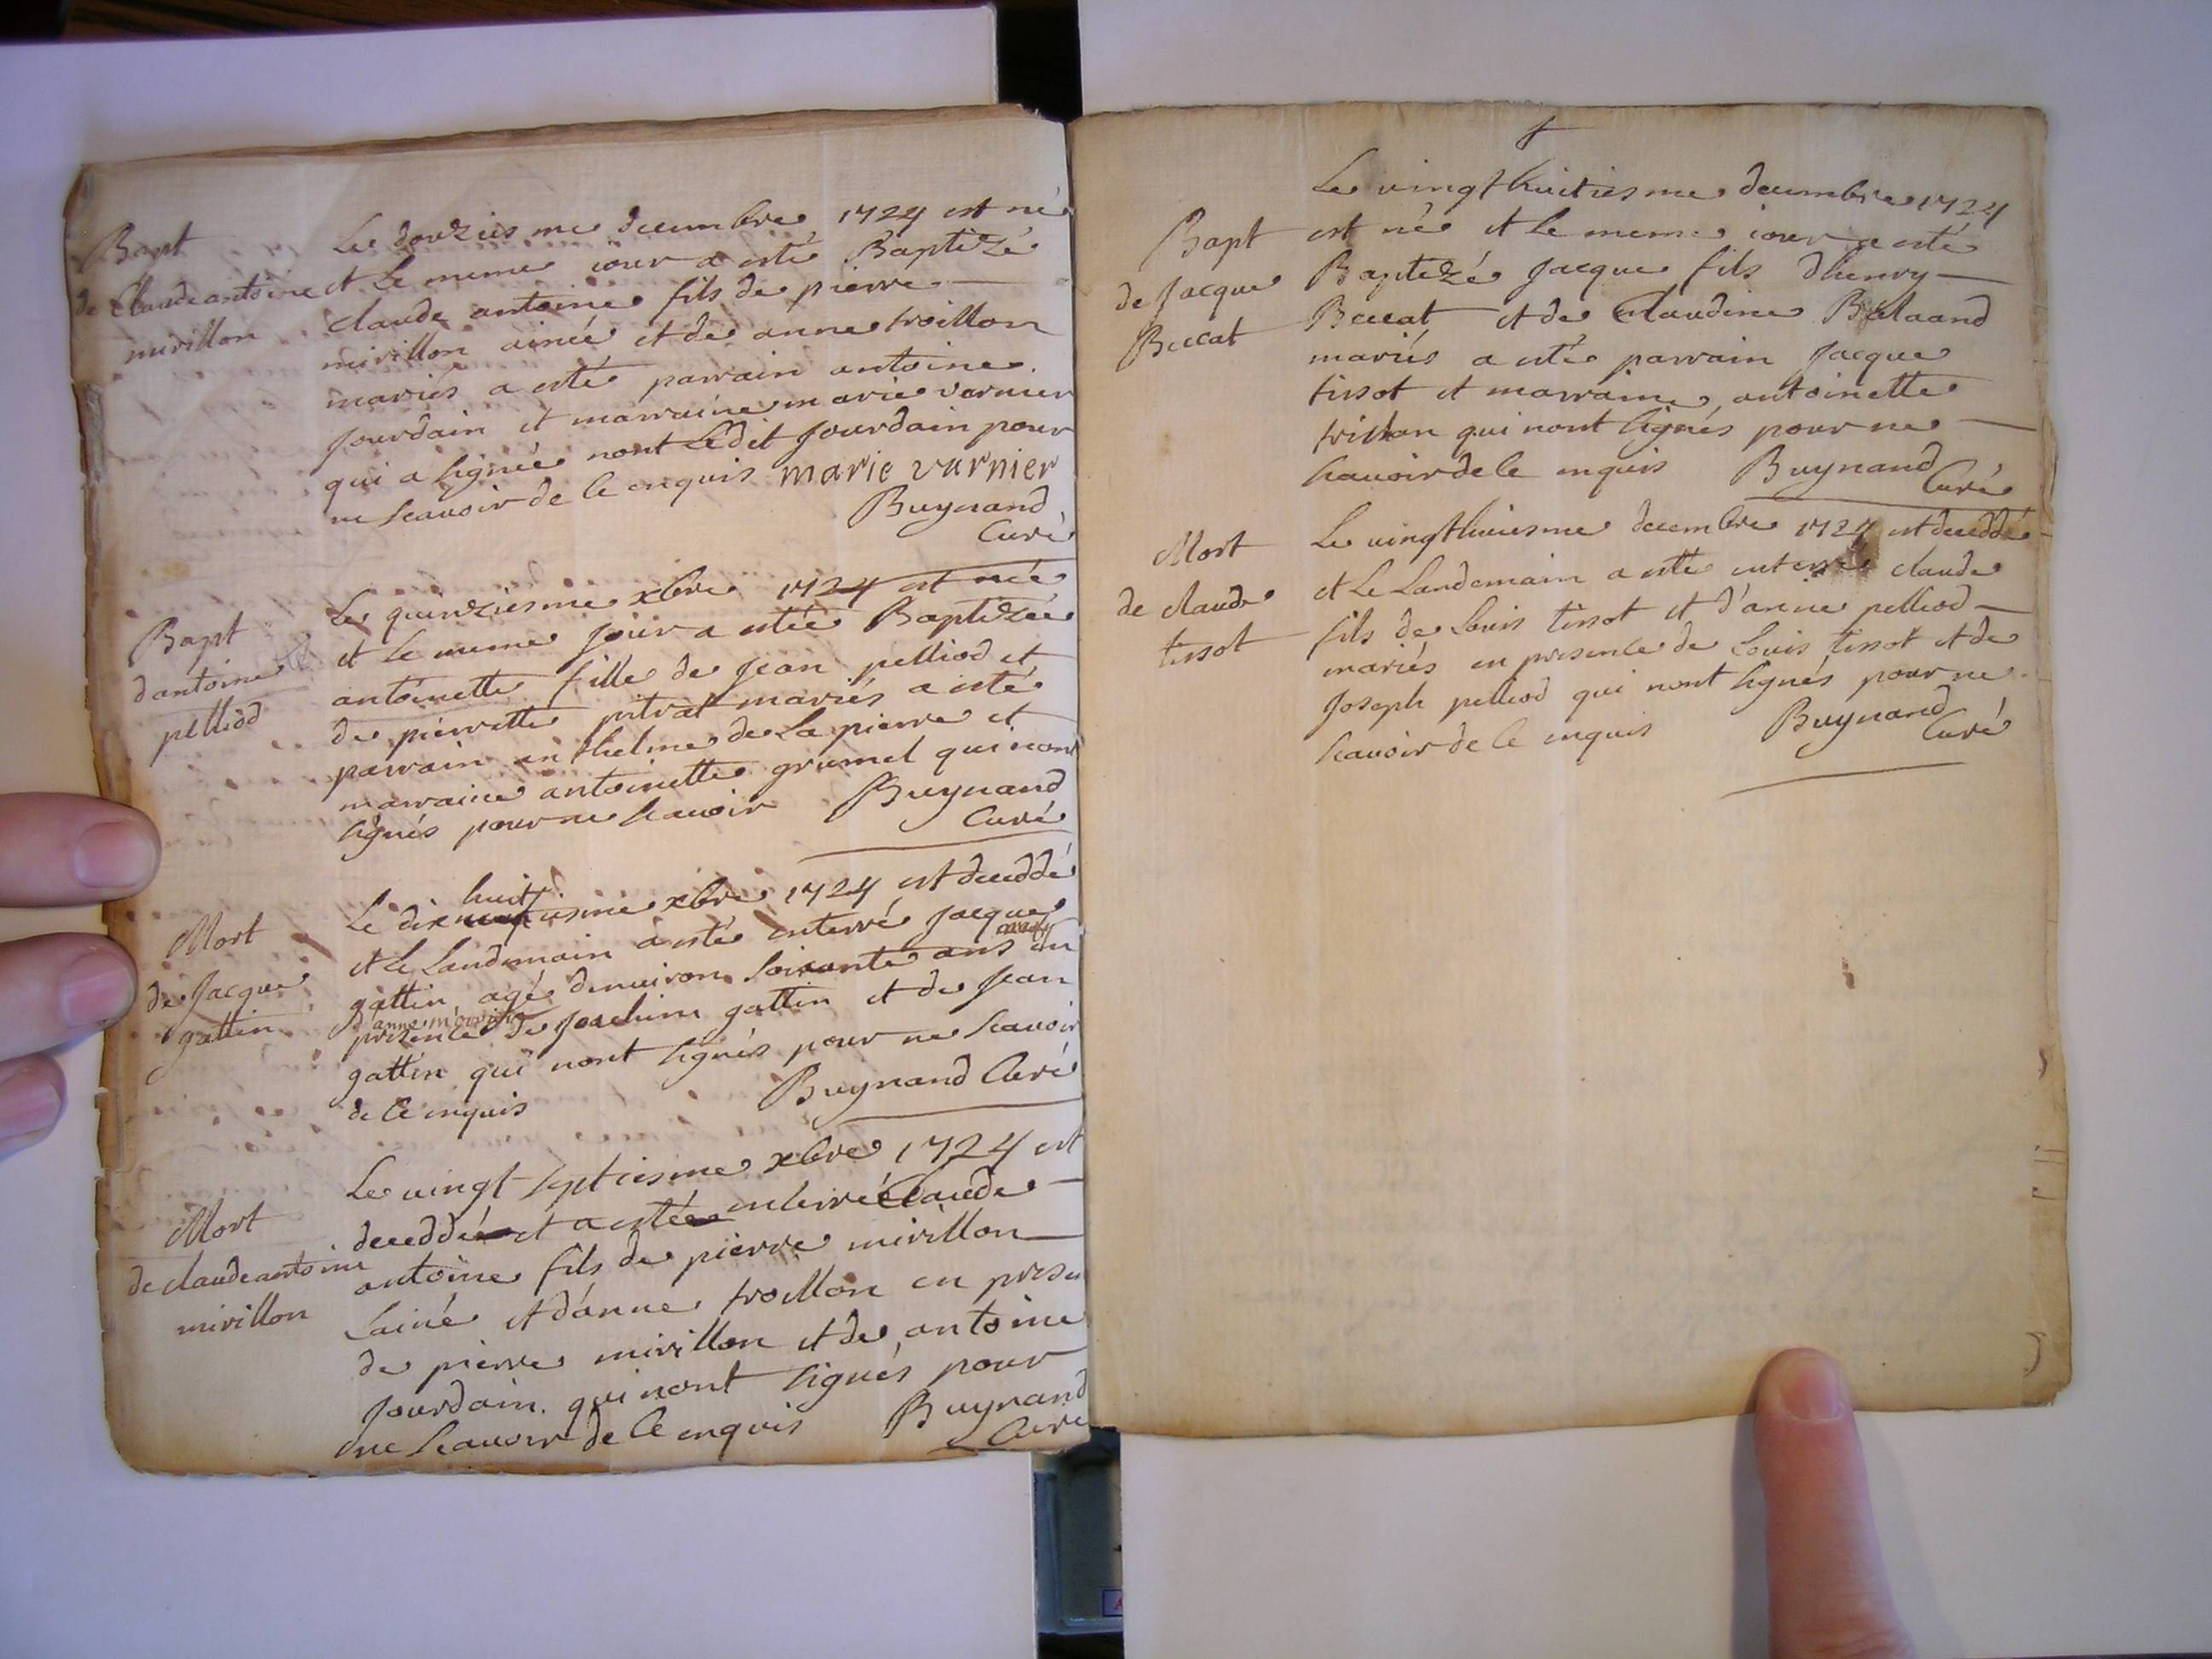 Bapt
de Claude antoine
mirillon
Le douziesme decembre 1724 est né
et Le meme iour a esté Baptizé
claude antoine fils de pierre
mirillon ainée et de anne troillon
mariés a esté parrain antoine
Jourdain et marraine marie varnier
qui a signée nont Ledit Jourdain pour
ne scavoir de ce enquis marie varnier
Buynand
Curé
Bapt
dantoine
pelliod
Le quinziesme xbre 1724 est née
et le meme jour a estée Baptizée
antoinette fille de Jean pelliod et
de pierrette pitrat mariés a esté
parrain anthelme de La pierre et
marraine antoinette grumel qui nont
signés pour ne scavoir Buynand
Curé
Mort
de Jacque
gattin
huit
Le dix iesme xbre 1724 est deceddé
et le Landemain a esté enterré Jacque
gattin agé denuiron soixante ans en
presence de Joachim gattin et de Jean
gattin qui nont signés pour ne scavoir
de ce enquis Buynand Curé
Mort
de claude antoine
mirillon
Le vingt septiesme xbre 1724 est
deceddé et a esté enterré Claude
antoine fils de pierre mirillon
Lainé et d'anne troillon en presen
de pierre mirillon et de antoine
Jourdain qui nont signés pour
ne scavoir de ce enquis Buynand
Curé
Bapt
de Jacque
Beccat
Le vingthuitiesme decembre 1724
est né et le meme iour a esté
Baptizé Jacque fils dhenry
Beccat et de Claudine
mariés a esté parrain Jacque
tissot et marraine antoinette
qui nont signés pour ne
scavoir de ce enquis Buynand
Curé
Mort
de claude
tissot
Le vingthuiesme decembre 1724 est deceddé
et Le Landemain a esté enterré claude
fils de Louis tissot et d'anne pelliod
mariés en presence de Louis tissot et de
Joseph pelliod qui nont signés pour ne
scavoir de ce enquis Buynand
Curé